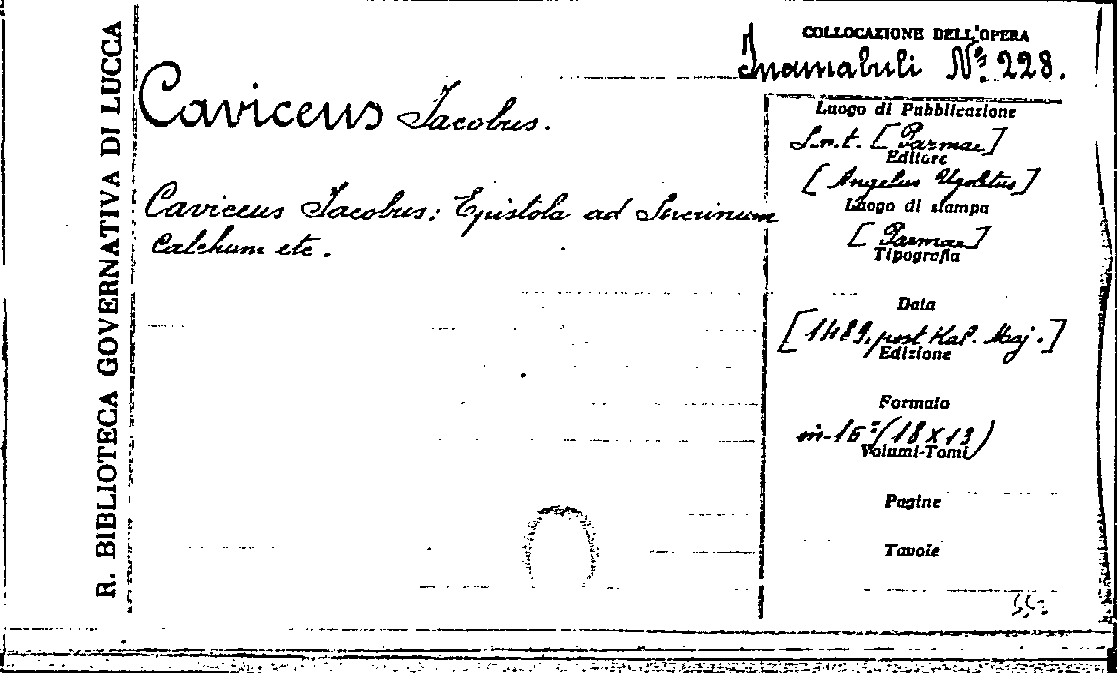 R. BIBLIOTECA GOVERNATIVA DI LUCCA
COLLOCAZIONE DELL'OPERA
Inamabuli Nº 228.
Caviceus Jacobus.
Caviceus Jacobus: Epistola ad Severinum
Calchum etc.
Luogo di Pubblicazione
S.n.t. [Parmae]
Editore
[Angelus Ugoletus]
Luogo di stampa
[Parmae]
Tipografia
Data
[1489, post Kal. Maj.]
Edizione
Formato
in-16º (18 X 13)
Volumi-Tomi
Pagine
Tavole